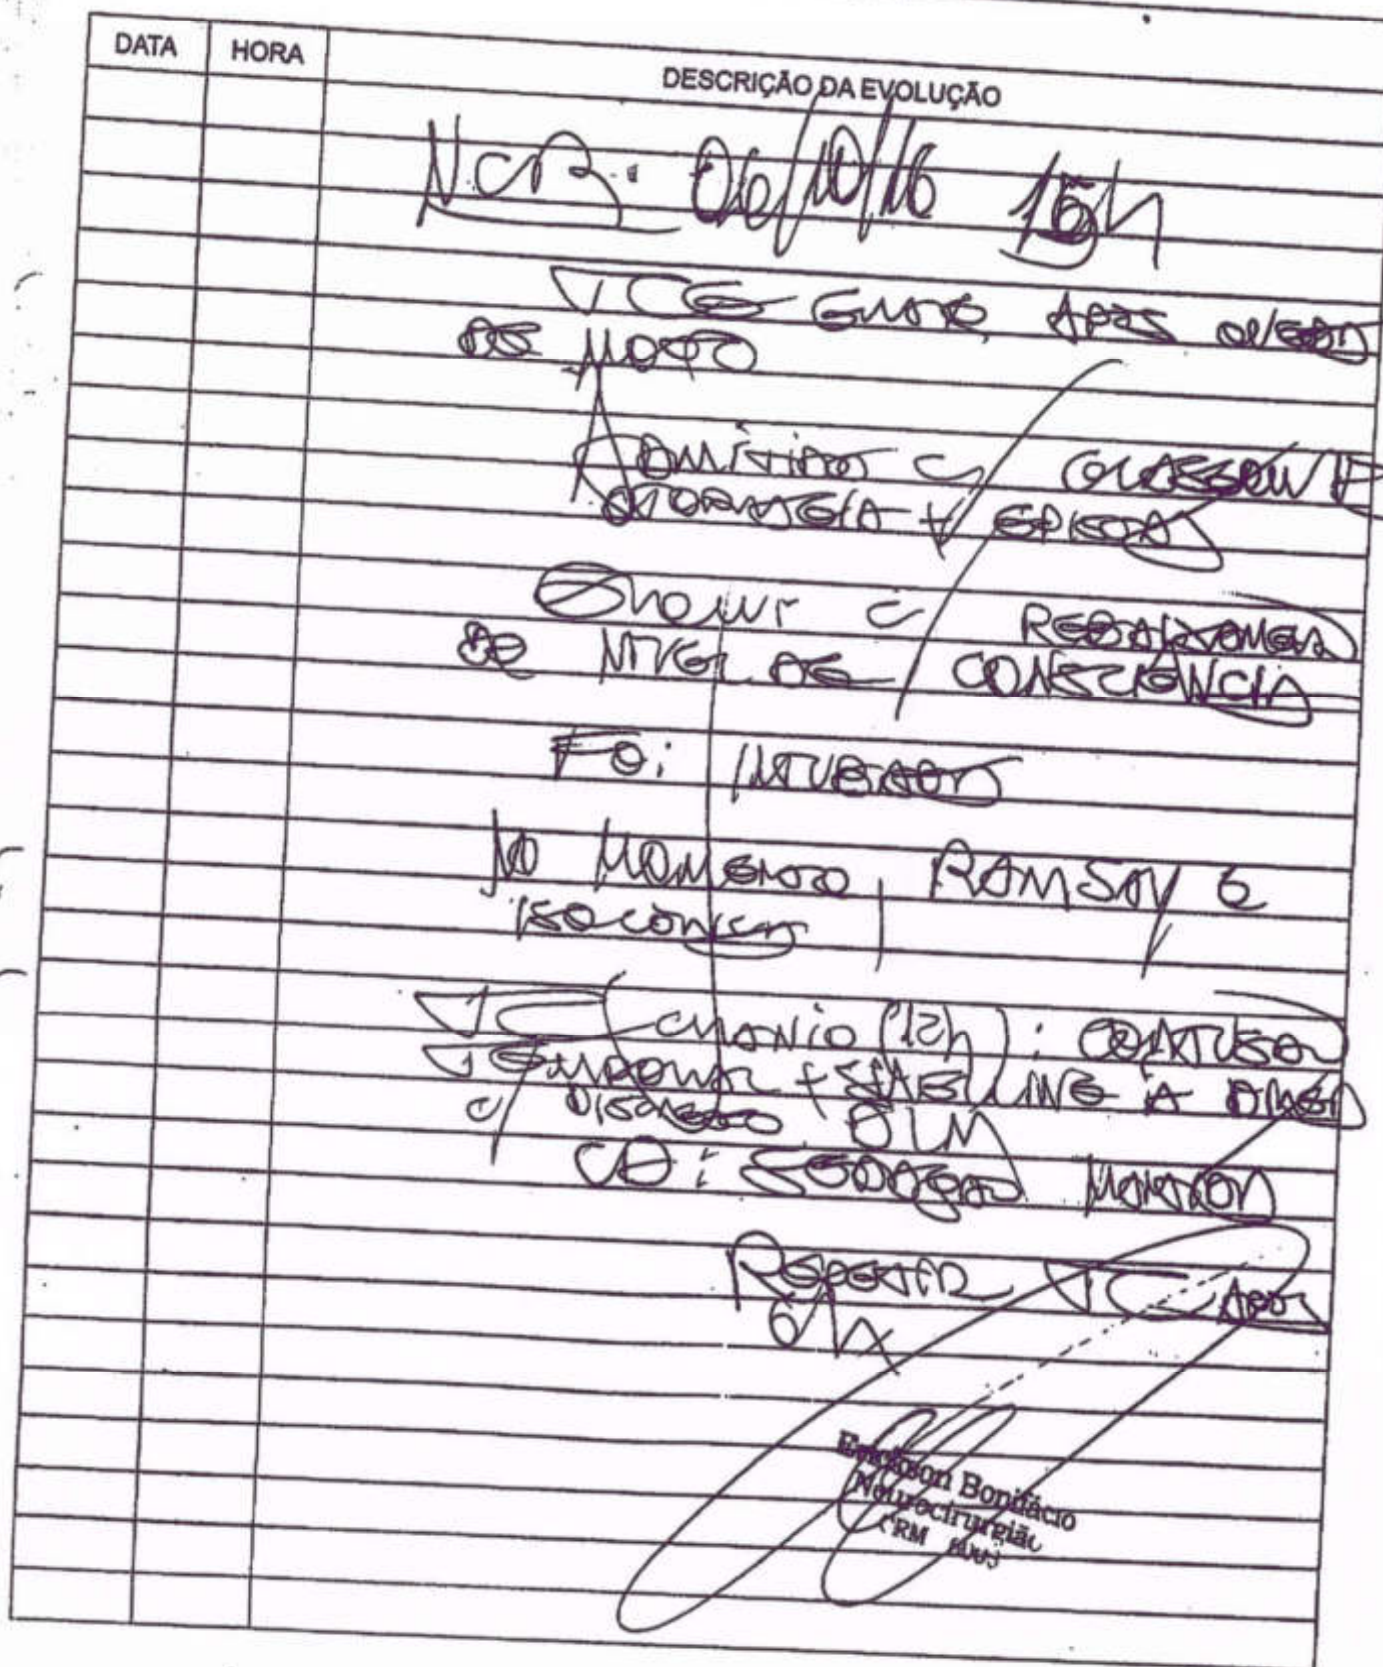 DATA HORA DESCRIÇÃO DA EVOLUÇÃO
NCR: 06/10/16 15h
TCE GRAVE APÓS QUEDA
DE MOTO
ADMITIDO C/
OTORRAGIA +
EVOLUI C/ REBAIXAMENTO
DE NIVEL DE CONSCIÊNCIA
FOI INTUBADO
NO MOMENTO RAMSAY 6
ISOCÓRICAS
TC CRANIO (12h): CONTUSÃO
TEMPORAL + À
C/ DISCRETO DLM
CD: SEDAÇÃO
REPETIR TC APÓS
6h
Bonifácio
Neurocirurgião
CRM